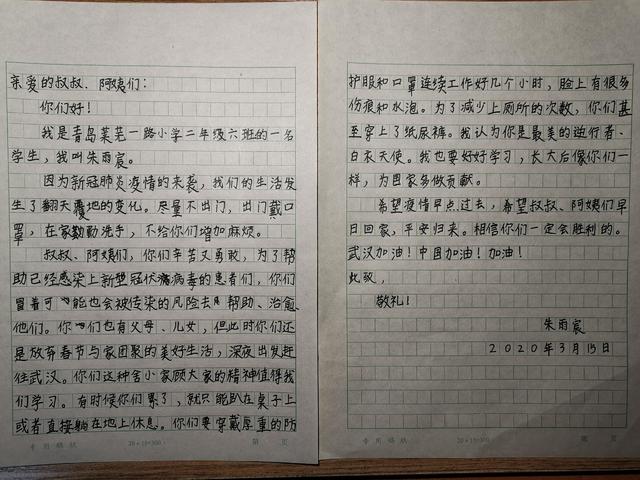 亲爱的叔叔、阿姨们：
你们好！
我是青岛莱芜一路小学二年级六班的一名
学生，我叫朱雨宸。
因为新冠肺炎疫情的来袭，我们的生活发
生了翻天覆地的变化。尽量不出门，出门戴口
罩，在家勤洗手，不给你们增加麻烦。
叔叔、阿姨们，你们辛苦又勇敢，为了帮
助已经感染上新型冠状病毒的患者们，你们
冒着可能也会被传染的风险去帮助、治愈
他们。你们也有父母、儿女，但此时你们还
是放弃春节与家团聚的美好生活，深夜出发赶
往武汉。你们这种舍小家顾大家的精神值得我
们学习。有时候你们累了，就只能趴在桌子上
或者直接躺在地上休息。你们要穿戴厚重的防
专用稿纸 20×15=300 第 页
护服和口罩连续工作好几个小时，脸上有很多
伤痕和水泡。为了减少上厕所的次数，你们甚
至穿上了纸尿裤。我认为你是最美的逆行者、
白衣天使。我也要好好学习，长大后像你们一
样，为国家多做贡献。
希望疫情早点过去，希望叔叔、阿姨们早
日回家，平安归来。相信你们一定会胜利的。
武汉加油！中国加油！加油！
此致，
敬礼！
朱雨宸
2020年3月15日
专用稿纸 20×15=300 第 页